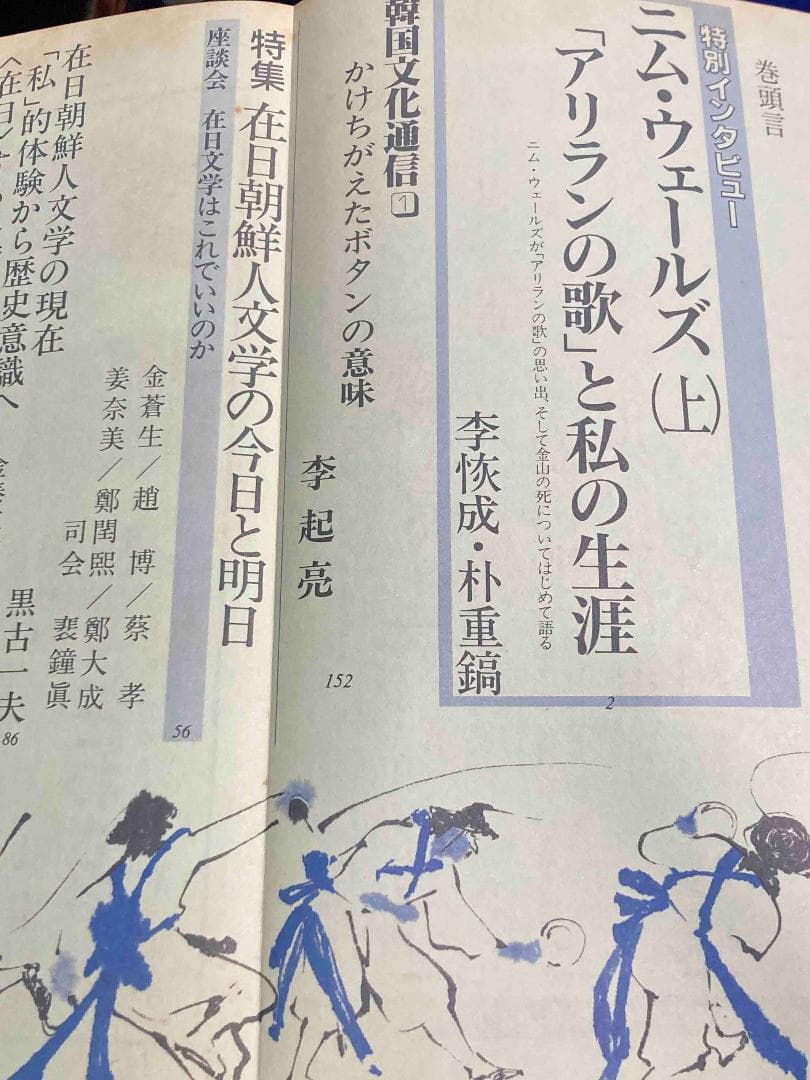 巻頭言
特別インタビュー
ニム・ウェールズ(上)
「アリランの歌」と私の生涯
ニム・ウェールズが「アリランの歌」の思い出、そして金山の死についてはじめて語る
李恢成・朴重鎬
2
韓国文化通信1
かけちがえたボタンの意味
李起亮
152
特集 在日朝鮮人文学の今日と明日
座談会 在日文学はこれでいいのか
金蒼生/趙 博/蔡 孝
姜奈美/鄭閏熙/鄭大成
司会 裵鐘眞
56
在日朝鮮人文学の現在
「私」的体験から歴史意識へ
黒古一夫
86